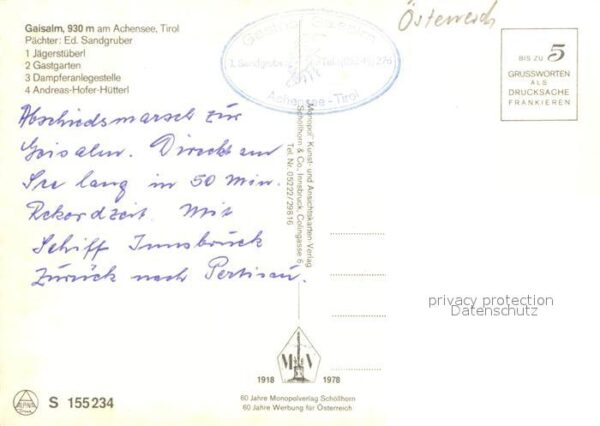 Gaisalm, 930 m am Achensee, Tirol
Pächter: Ed. Sandgruber
1 Jägerstüberl
2 Gastgarten
3 Dampferanlegestelle
4 Andreas-Hofer-Hütterl
Österreich
Gasthof Gaisalm
J. Sandgruber Tel.
Achensee - Tirol
BIS ZU 5
GRUSSWORTEN
ALS
DRUCKSACHE
FRANKIEREN
Abschiedsmarsch zur
Gaisalm. Direckt am
See lang in 50 Min.
Rekordzeit. Mit
Schiff Innsbruck
zurück nach Pertisau.
Monopol-Kunst- und Ansichtskarten-Verlag
Schöllhorn & Co., Innsbruck, Colingasse 6
Tel. Nr. 05222/29816
privacy protection
Datenschutz
M V
1918 1978
60 Jahre Monopolverlag Schöllhorn
60 Jahre Werbung für Österreich
ALPINA
S 155234